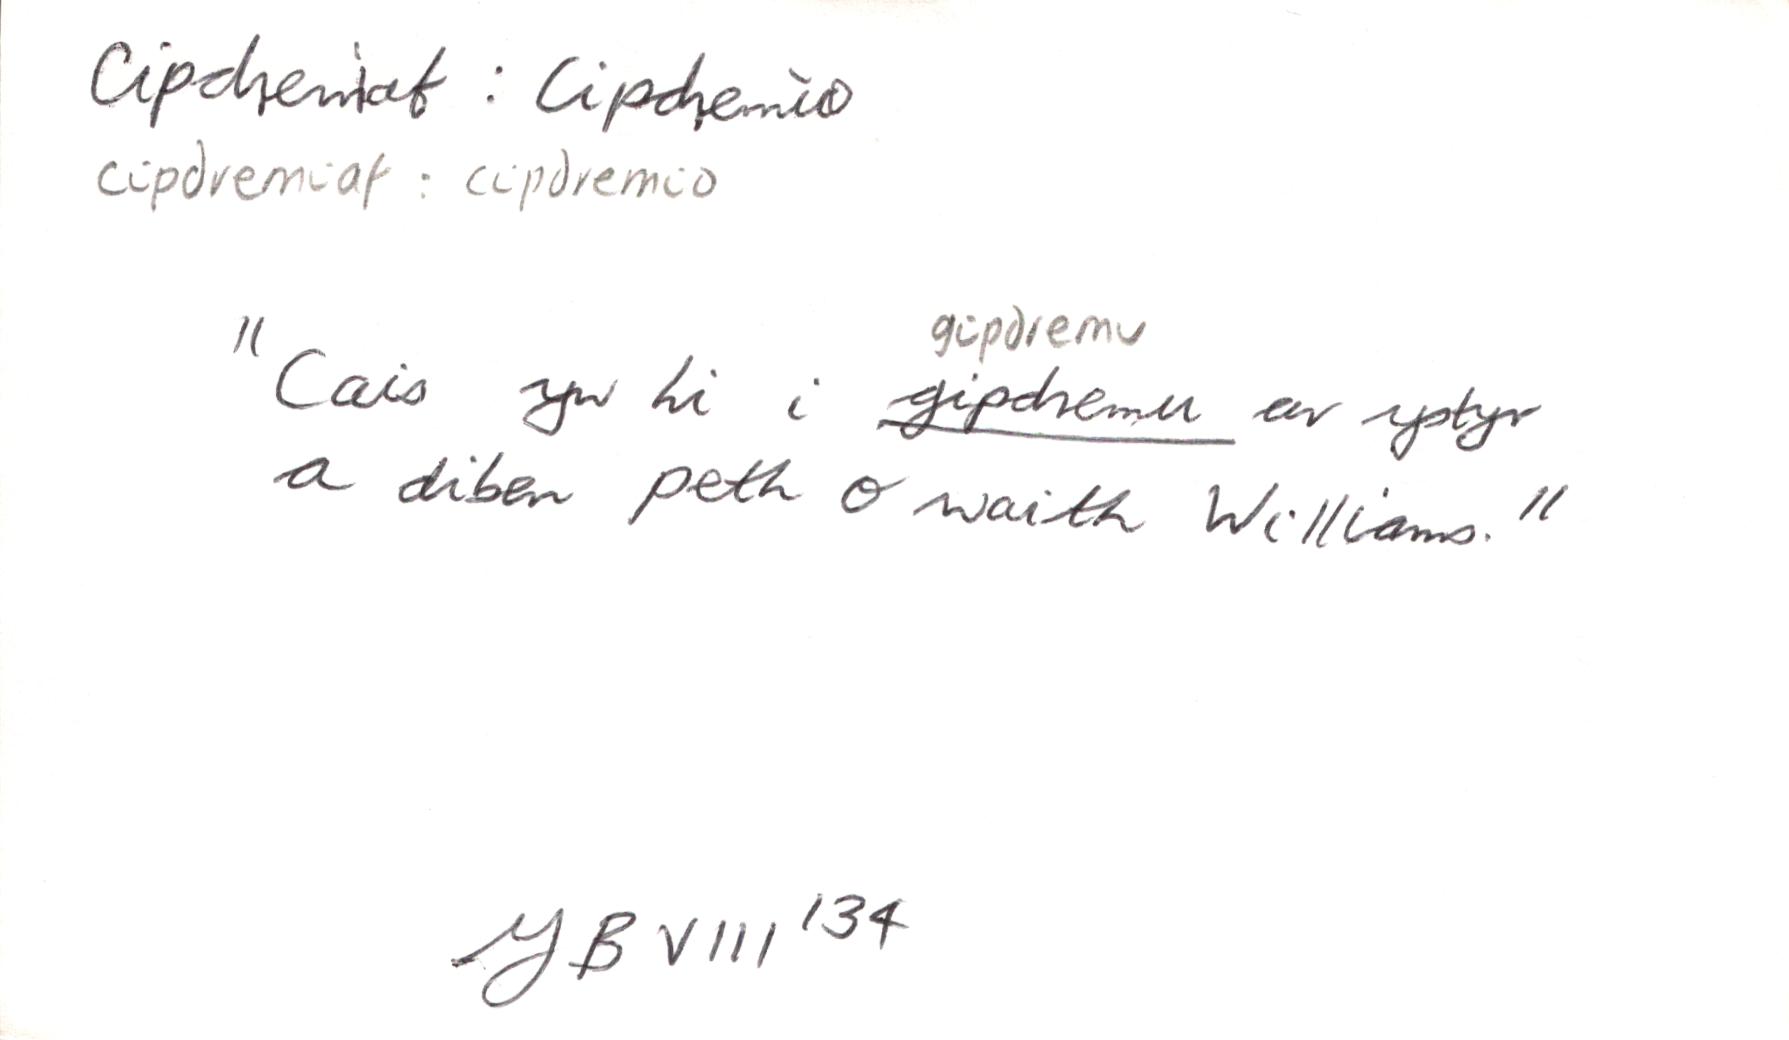 Cipdremiaf : Cipdremio
cipdremiaf : cipdremio
gipdremu
"Cais yw hi i gipdremu ar ystyr
a diben peth o waith Williams."
YB VIII 134